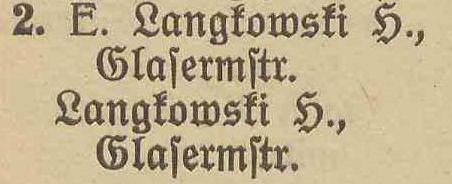 2. E. Langkowski H.,
Glaſermſtr.
Langkowski H.,
Glaſermſtr.